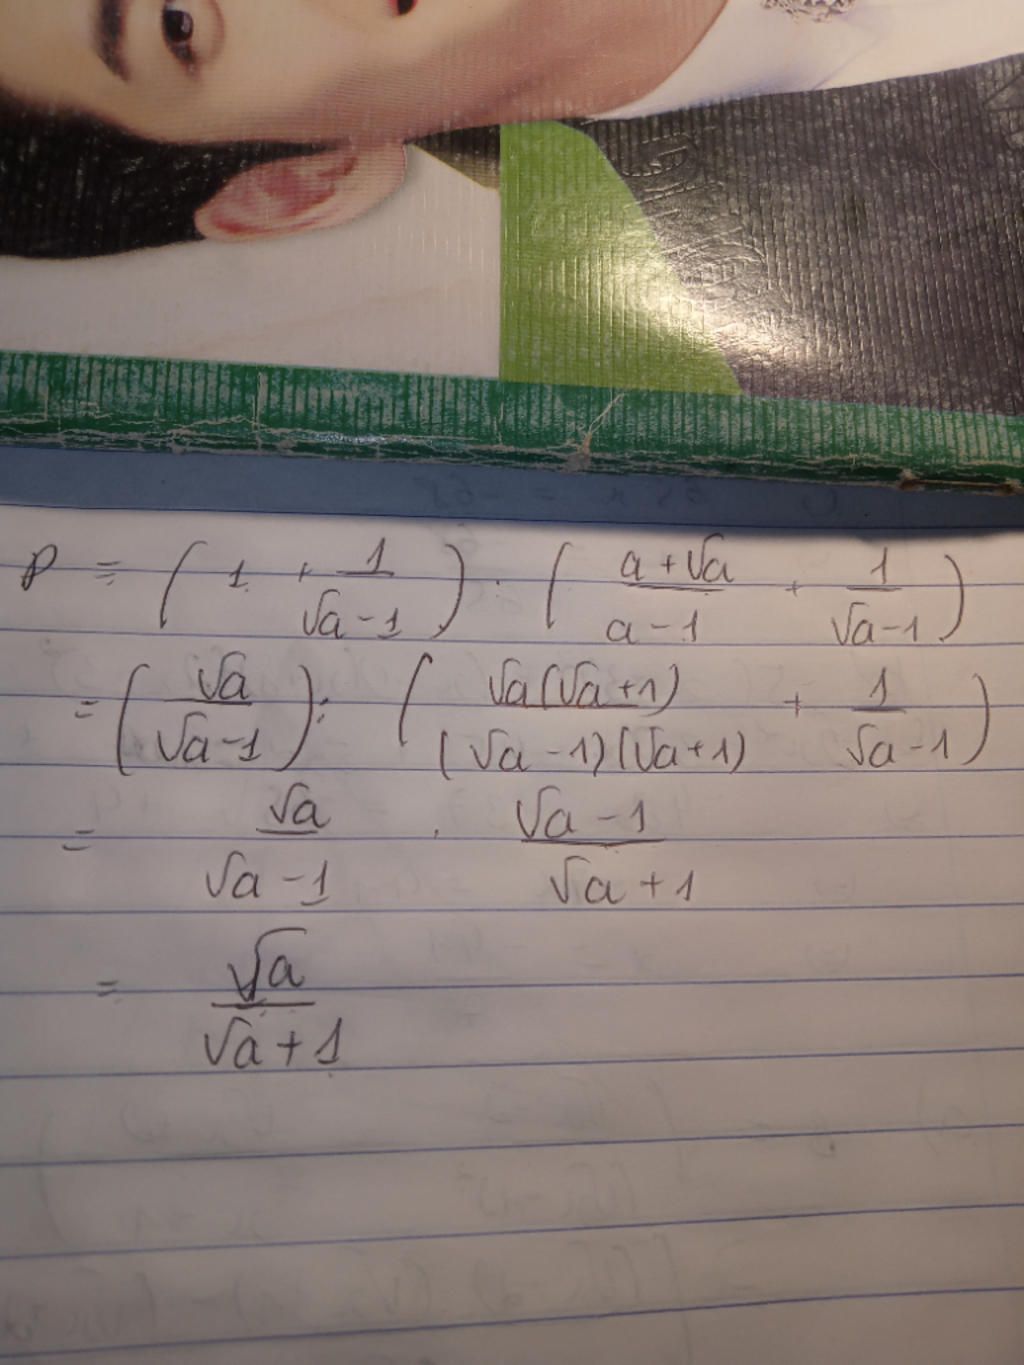 P = ( 1 + 1/(√a-1) ) . ( (a+√a)/(a-1) + 1/(√a-1) )
= ( √a/(√a-1) ) : ( √a(√a+1)/((√a-1)(√a+1)) + 1/(√a-1) )
= √a/(√a-1) . (√a-1)/(√a+1)
= √a/(√a+1)